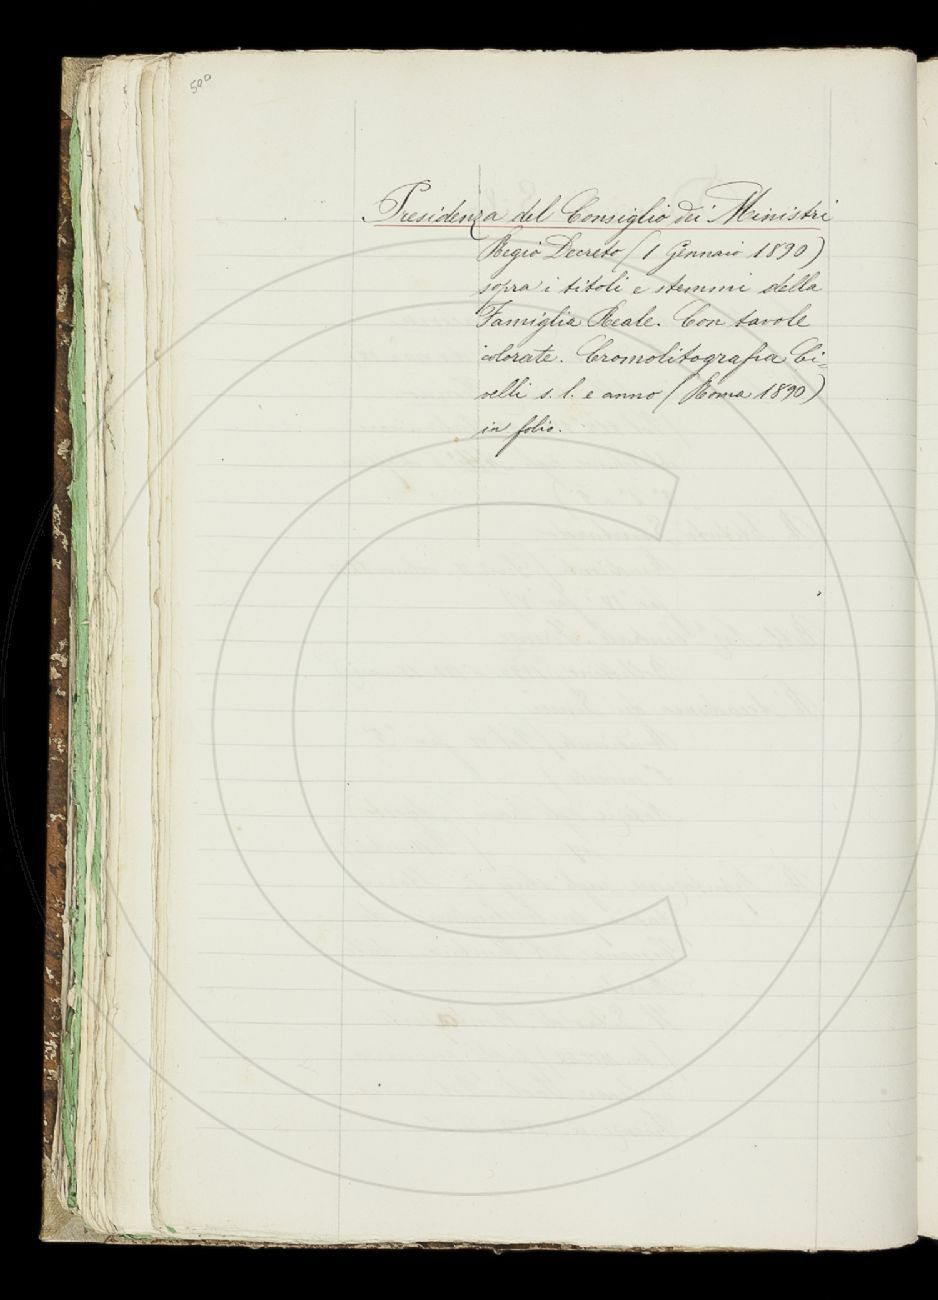 500
Presidenza del Consiglio dei Ministri
Regio Decreto (1 Gennaio 1890)
sopra i titoli e stemmi della
Famiglia Reale. Con tavole
colorate. Cromolitografia Ci=
velli s. l. e anno (Roma 1890)
in folio.